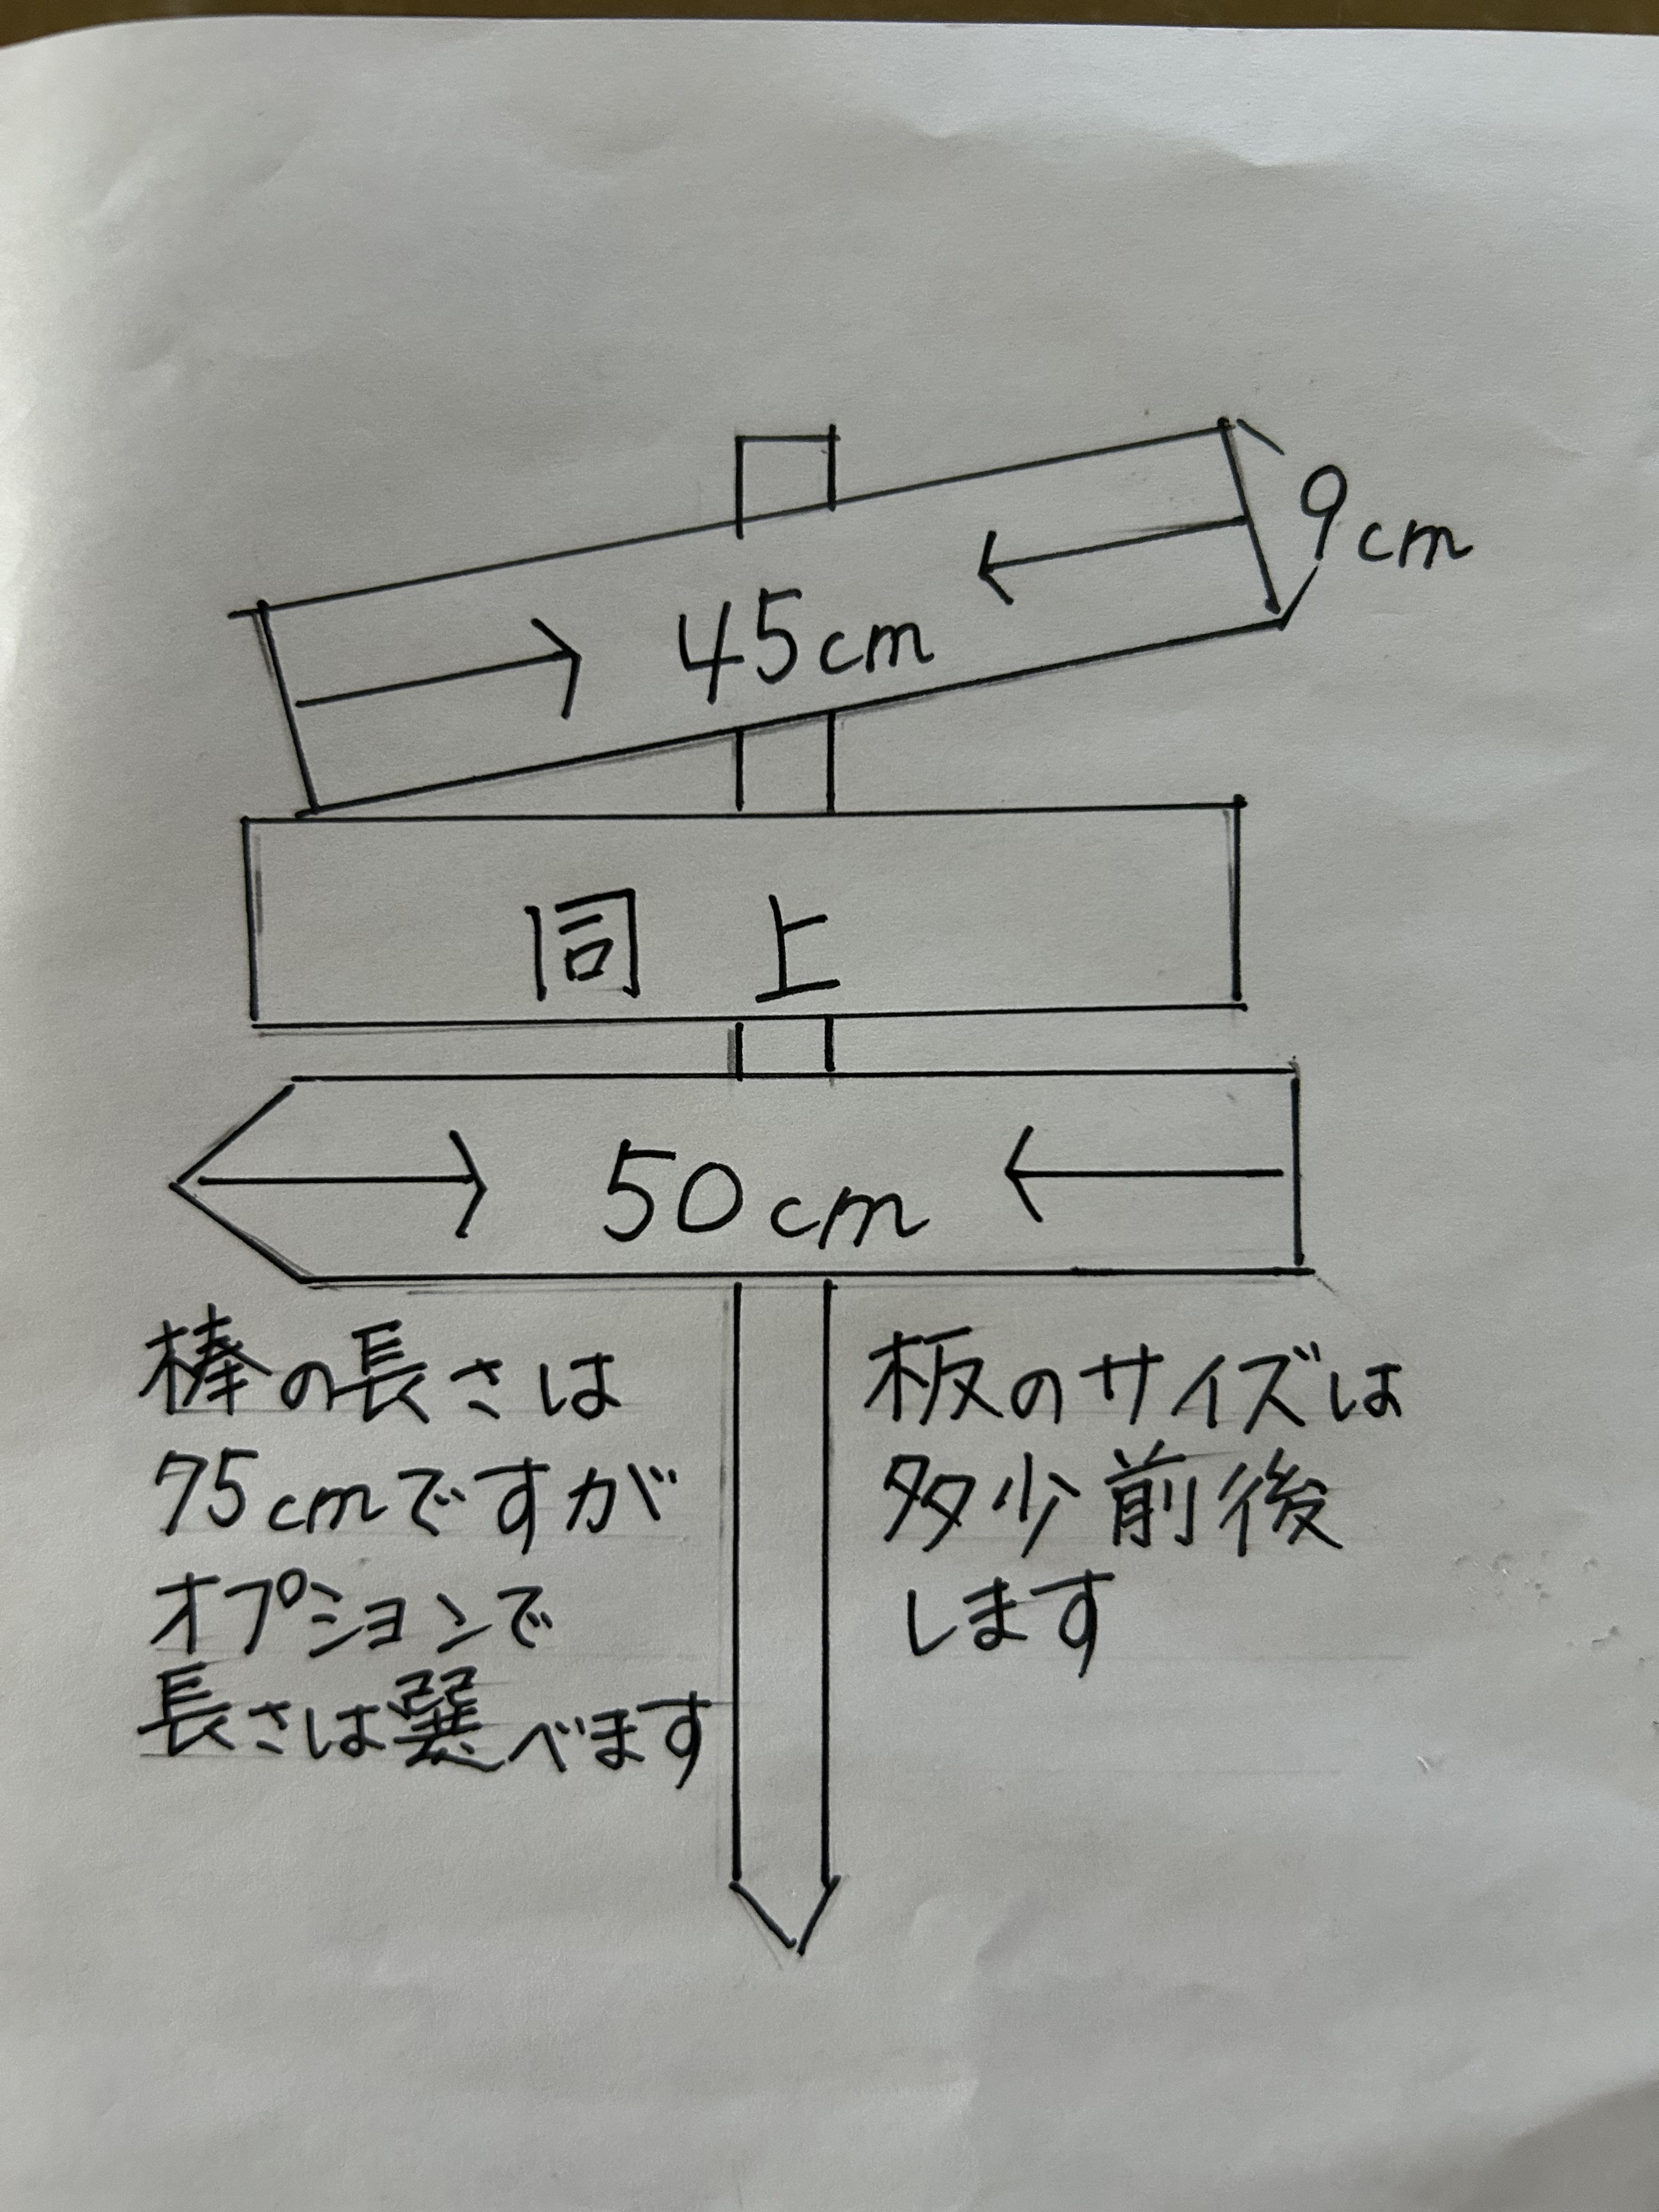 9cm
45cm
同上
50cm
棒の長さは
75cmですが
オプションで
長さは選べます
板のサイズは
多少前後
します